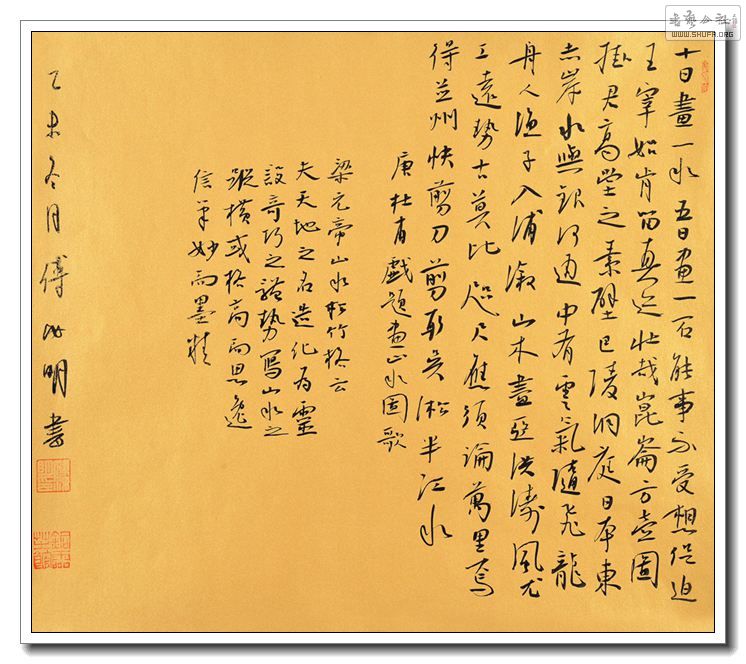 十日畫一水五日畫一石能事不受想促迫
王宰始肯留真迹壯哉崑崙方壺圖
掛君高堂之素壁巴陵洞庭日本東
赤岸水與銀河通中有雲氣隨飛龍
舟人漁子入浦漵山木盡亞洪濤風尤
工遠勢古莫比咫尺應須論萬里焉
得並州快剪刀剪取吳淞半江水
唐杜甫戲題畫山水圖歌
梁元帝山水松竹格云
夫天地之名造化為靈
設奇巧之體勢寫山水之
縱橫或格高而思逸
信筆妙而墨精
乙未冬月傅如明書
书艺公社
WWW.SHUFA.ORG